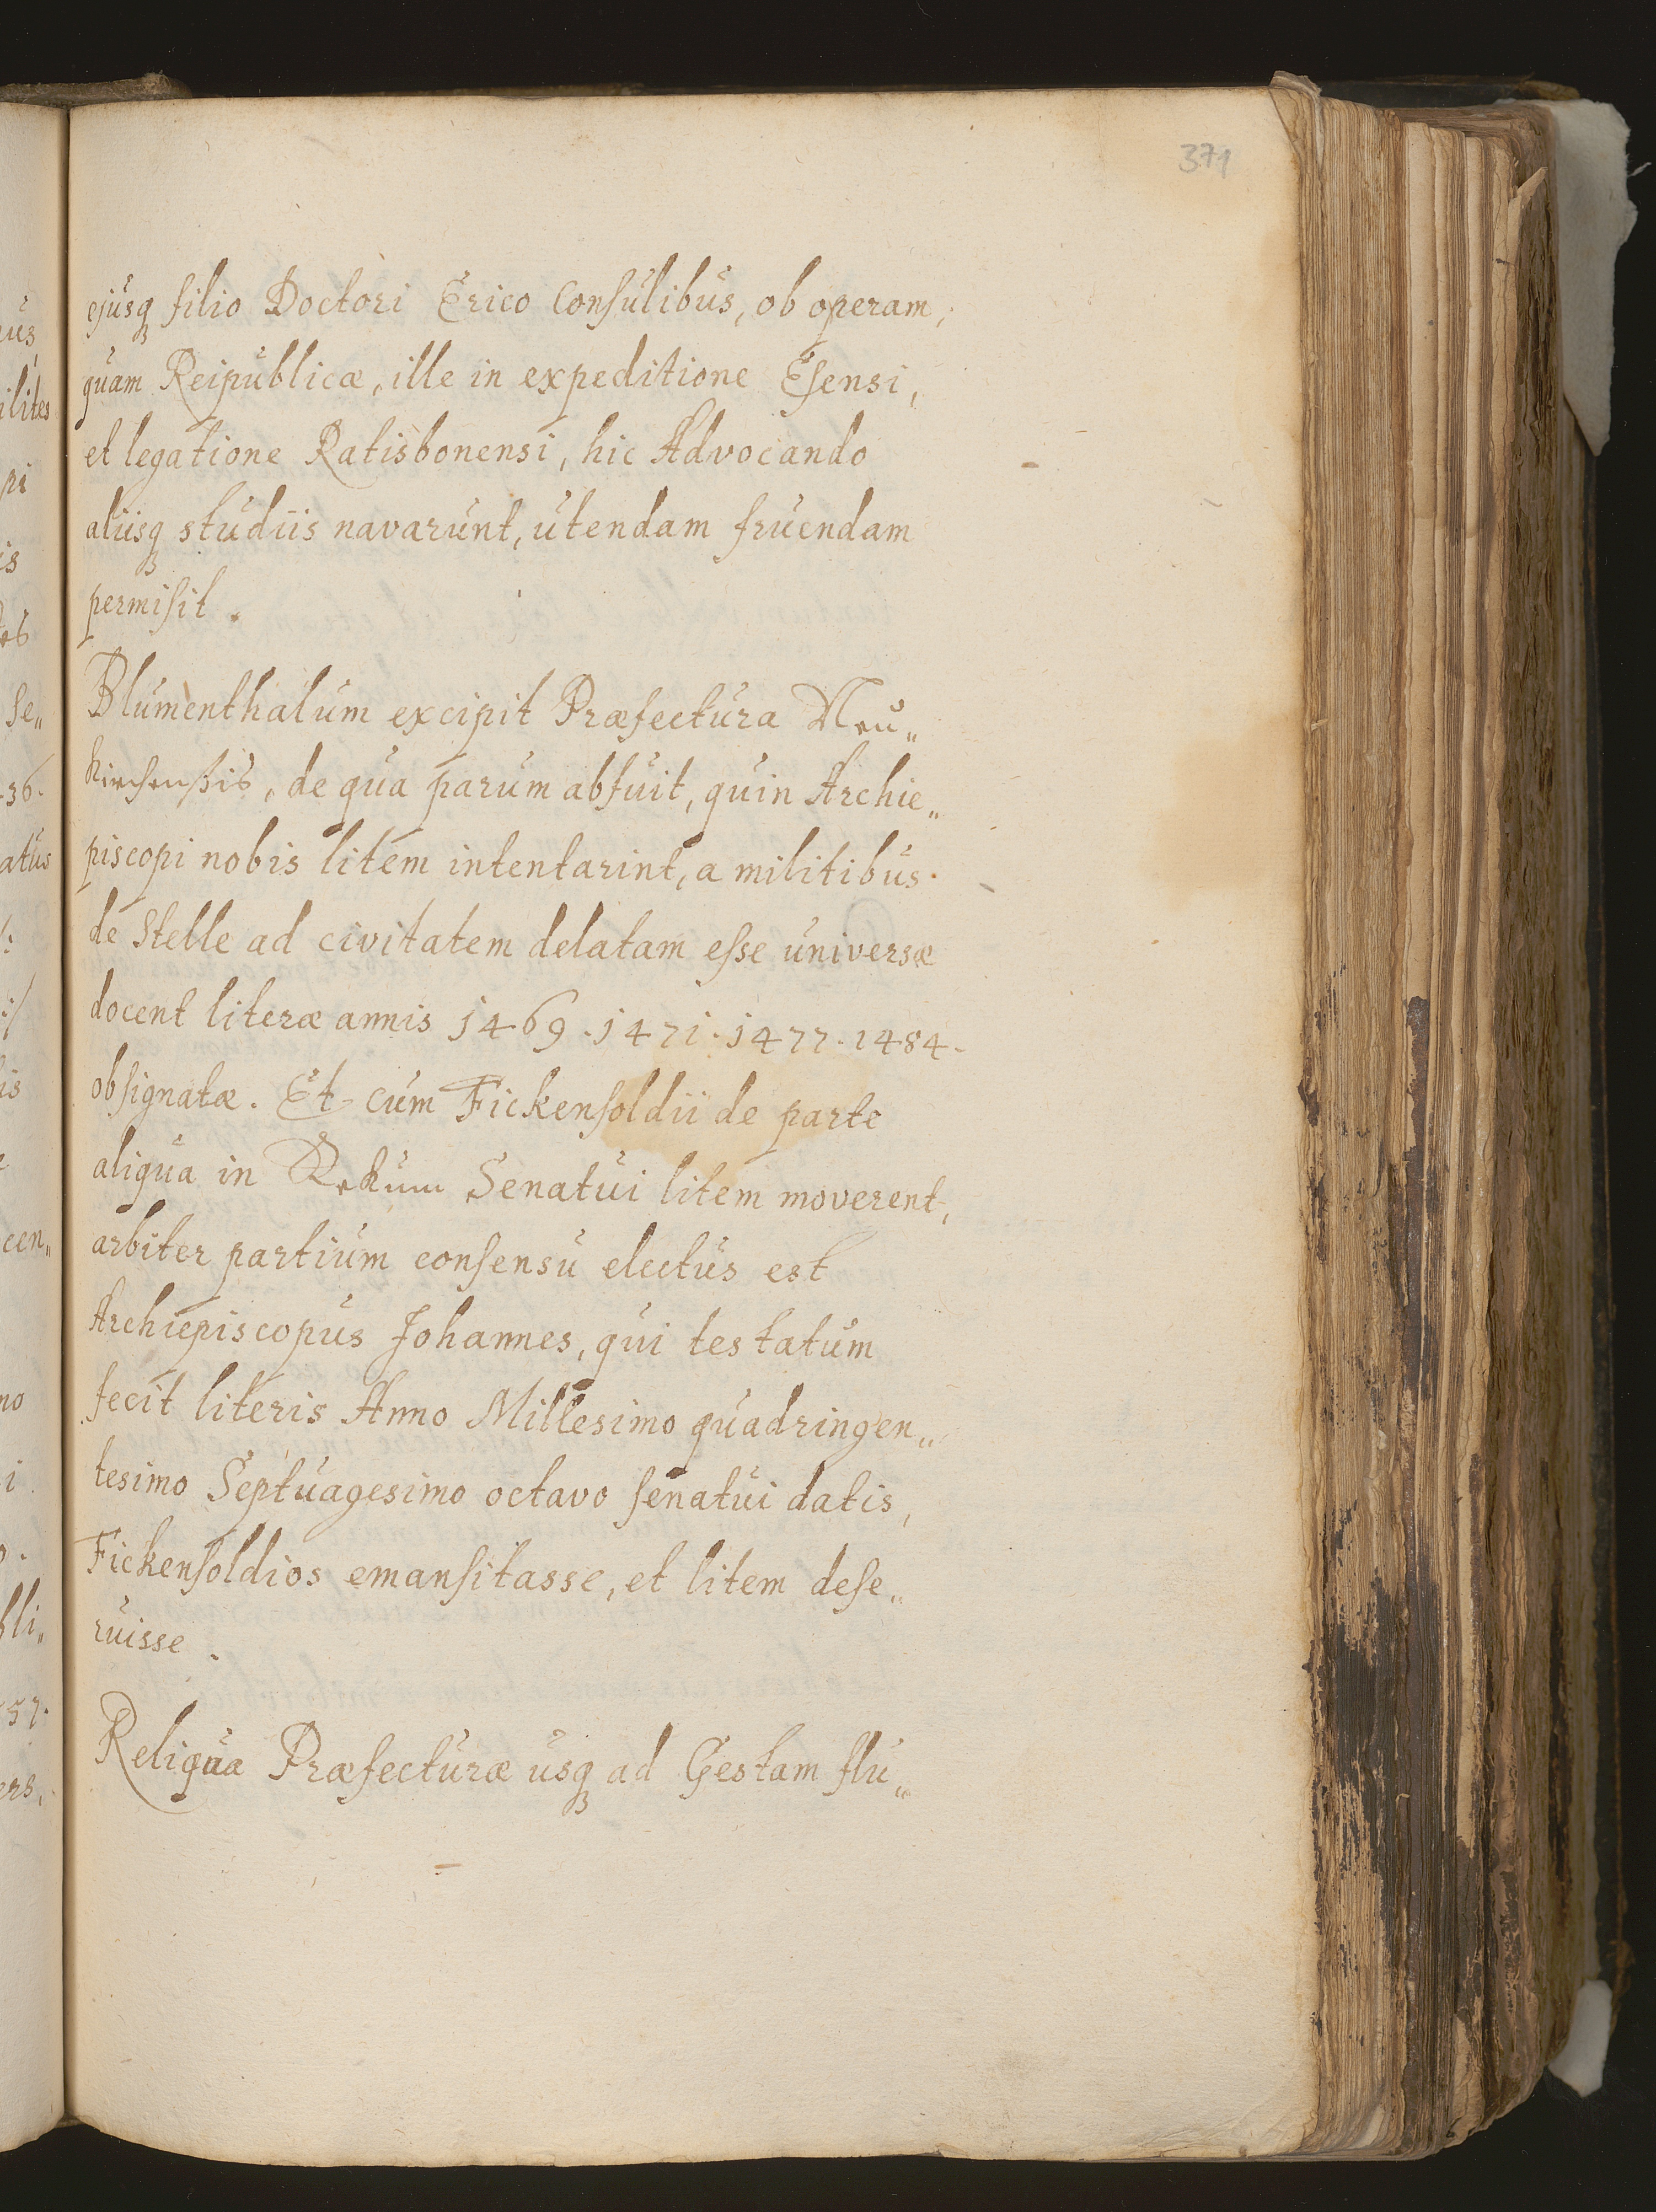 371
ejusq filio Doctori Erico Consulibus, ob operam,
quam Reipublicæ, ille in expeditione Esensi,
et legatione Ratisbonensi, hic Advocando
aliisq studiis navarunt, utendam fruendam
permisit.
Blumenthalum excipit Præfectura Neu„
kirchensis, de qua parum abfuit, quin Archie„
piscopi nobis litem intentarint, a militibus
de Stelle ad civitatem delatam esse universæ
docent literæ annis 1469. 1471. 1477. 1484.
obsignatæ. Et cum Fickensoldii de parte
aliqua in Rekum Senatui litem moverent,
arbiter partium consensu electus est
Archiepiscopus Johannes, qui testatum
fecit literis Anno Millesimo quadringen„
tesimo Septuagesimo octavo senatui datis,
Fickensoldios emansitasse, et litem dese„
ruisse.
Reliqua Præfecturæ usq ad Gestam flu„